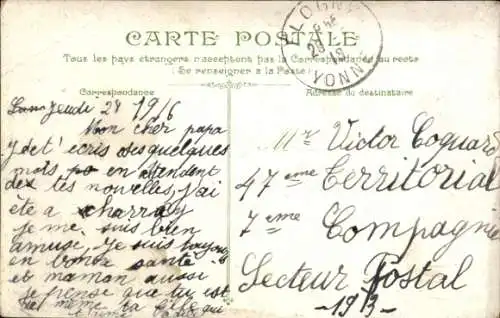 CARTE POSTALE
Tous les pays étrangers n'acceptent pas la Correspondance au recto
(Se renseigner à la Poste)
Correspondance
Adresse du destinataire
YONN
Jeudi 24 1916
Mon cher papa
Je t'écris ses quelques
mots en n'attendent
des tes nouvelles j'ai
étéa charray
je me suis bien
amuse, Je suis toujours
en bonne santé
et maman aussi
Je pense que tu est
de même ta fille qui
Mr Victor Coquard
47 eme Territorial
7 eme Compagnie
Secteur Postal
-193-